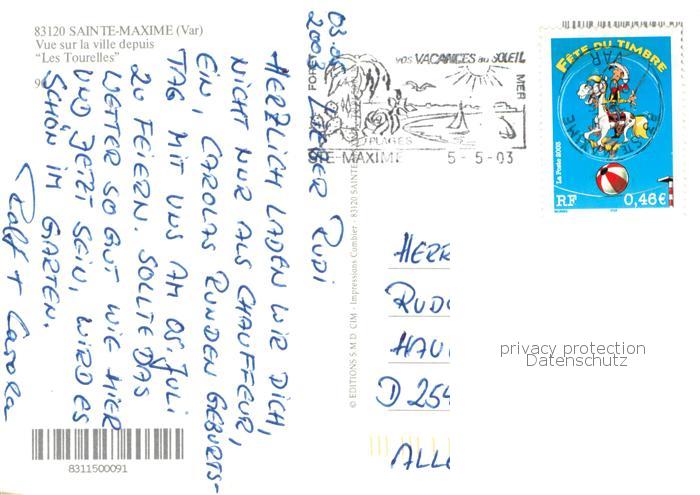 83120 SAINTE-MAXIME (Var)
Vue sur la ville depuis
"Les Tourelles"
LIEBER RUDI
HERZLICH LADEN WIR DICH,
NICHT NUR ALS CHAUFFEUR,
EIN, CAROLAS RUNDEN GEBURTS-
TAG MIT UNS AM 05. JULI
ZU FEIERN. SOLLTE DAS
WETTER SO GUT WIE HIER
UND JETZT SEIN, WIRD ES
SCHÖN IM GARTEN.
Ralf + Carola
8311500091
© EDITIONS S.M.D. CIM - Impressions Combier - 83120 SAINTE
VOS VACANCES au SOLEIL
FORÊT
MER
PLAGES
STE-MAXIME 5-5-03
FÊTE DU TIMBRE
La Poste 2003
RF 0,46€
HERR
RUD
HAU
D 254
ALL
privacy protection
Datenschutz